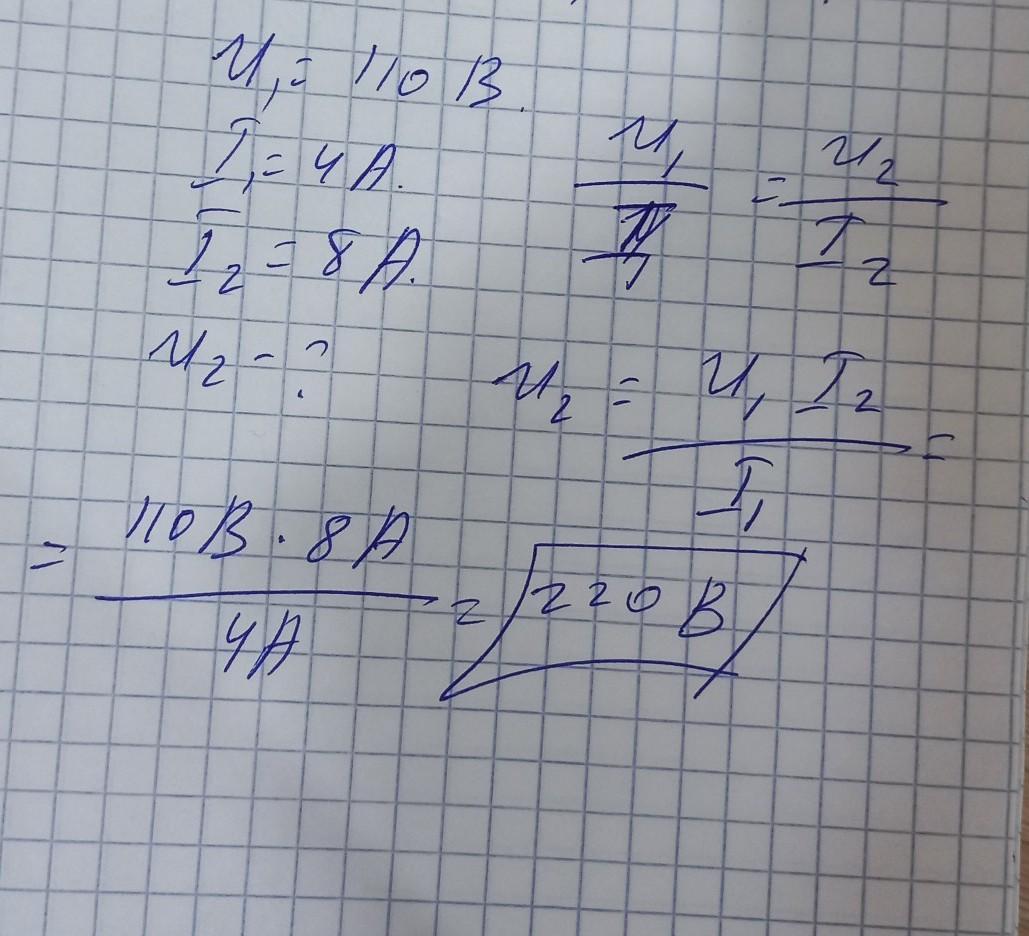 U₁ = 110 В.
I₁ = 4 А.
I₂ = 8 А.
U₂ - ?
U₁/I₁ = U₂/I₂
U₂ = U₁ I₂ / I₁ =
= 110 В · 8 А / 4 А = 220 В